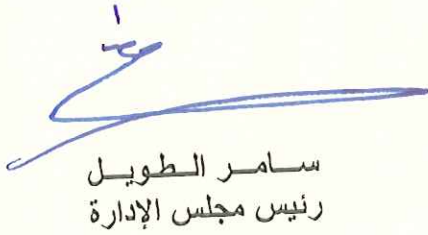 سامر الطويل
رئيس مجلس الإدارة